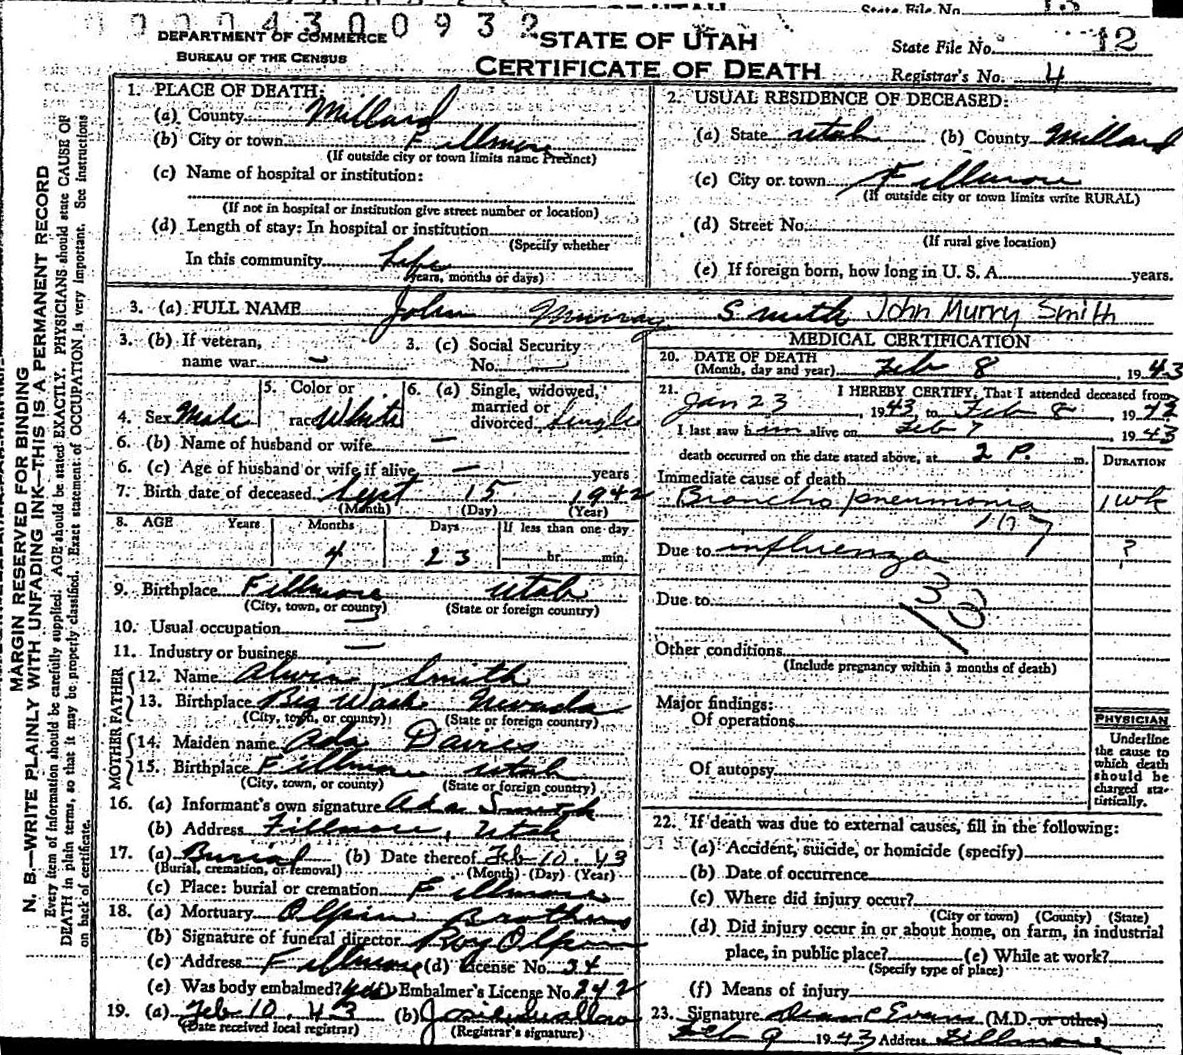 State File No. 13
00004300932
DEPARTMENT OF COMMERCE
BUREAU OF THE CENSUS
STATE OF UTAH
CERTIFICATE OF DEATH
State File No. 12
Registrar's No. 4
N. B.—WRITE PLAINLY WITH UNFADING INK—THIS IS A PERMANENT RECORD
MARGIN RESERVED FOR BINDING
Every item of information should be carefully supplied. AGE should be stated EXACTLY. PHYSICIANS should state CAUSE OF
DEATH in plain terms, so that it may be properly classified. Exact statement of OCCUPATION is very important. See instructions
on back of certificate.
1. PLACE OF DEATH:
(a) County Millard
(b) City or town Fillmore
(If outside city or town limits name Precinct)
(c) Name of hospital or institution:
(If not in hospital or institution give street number or location)
(d) Length of stay: In hospital or institution
(Specify whether
In this community Life
years, months or days)
2. USUAL RESIDENCE OF DECEASED:
(a) State Utah (b) County Millard
(c) City or town Fillmore
(If outside city or town limits write RURAL)
(d) Street No.
(If rural give location)
(e) If foreign born, how long in U. S. A. years.
3. (a) FULL NAME John Murray Smith John Murry Smith
3. (b) If veteran, name war —
3. (c) Social Security No. —
4. Sex Male
5. Color or race White
6. (a) Single, widowed, married or divorced Single
6. (b) Name of husband or wife —
6. (c) Age of husband or wife if alive — years
7. Birth date of deceased Sept 15 1942
(Month) (Day) (Year)
8. AGE Years Months Days If less than one day
4 23 hr. min.
9. Birthplace Fillmore Utah
(City, town, or county) (State or foreign country)
10. Usual occupation —
11. Industry or business —
FATHER
12. Name Alvin Smith
13. Birthplace Big Wash Nevada
(City, town, or county) (State or foreign country)
MOTHER
14. Maiden name Ada Davies
15. Birthplace Fillmore Utah
(City, town, or county) (State or foreign country)
16. (a) Informant's own signature Ada Smith
(b) Address Fillmore, Utah
17. (a) Burial (b) Date thereof Feb 10. 43
(Burial, cremation, or removal) (Month) (Day) (Year)
(c) Place: burial or cremation Fillmore
18. (a) Mortuary Olpin Brothers
(b) Signature of funeral director Roy Olpin
(c) Address Fillmore (d) License No. 34
(e) Was body embalmed? yes (f) Embalmer's License No. 242
19. (a) Feb 10. 43 (b)
(Date received local registrar) (Registrar's signature)
MEDICAL CERTIFICATION
20. DATE OF DEATH
(Month, day and year) Feb 8, 1943
21. I HEREBY CERTIFY, That I attended deceased from
Jan 23, 1943 to Feb 8, 1943
I last saw him alive on Feb 7 1943
death occurred on the date stated above, at 2 P. m.
DURATION
Immediate cause of death
Broncho pneumonia 1 wk
107
Due to influenza ?
Due to
Other conditions
(Include pregnancy within 3 months of death)
Major findings:
Of operations
Of autopsy
PHYSICIAN
Underline
the cause to
which death
should be
charged sta-
tistically.
22. If death was due to external causes, fill in the following:
(a) Accident, suicide, or homicide (specify)
(b) Date of occurrence
(c) Where did injury occur?
(City or town) (County) (State)
(d) Did injury occur in or about home, on farm, in industrial
place, in public place? (e) While at work?
(Specify type of place)
(f) Means of injury
23. Signature Dean C Evans (M.D. or other)
Feb 9 1943 Address Fillmore